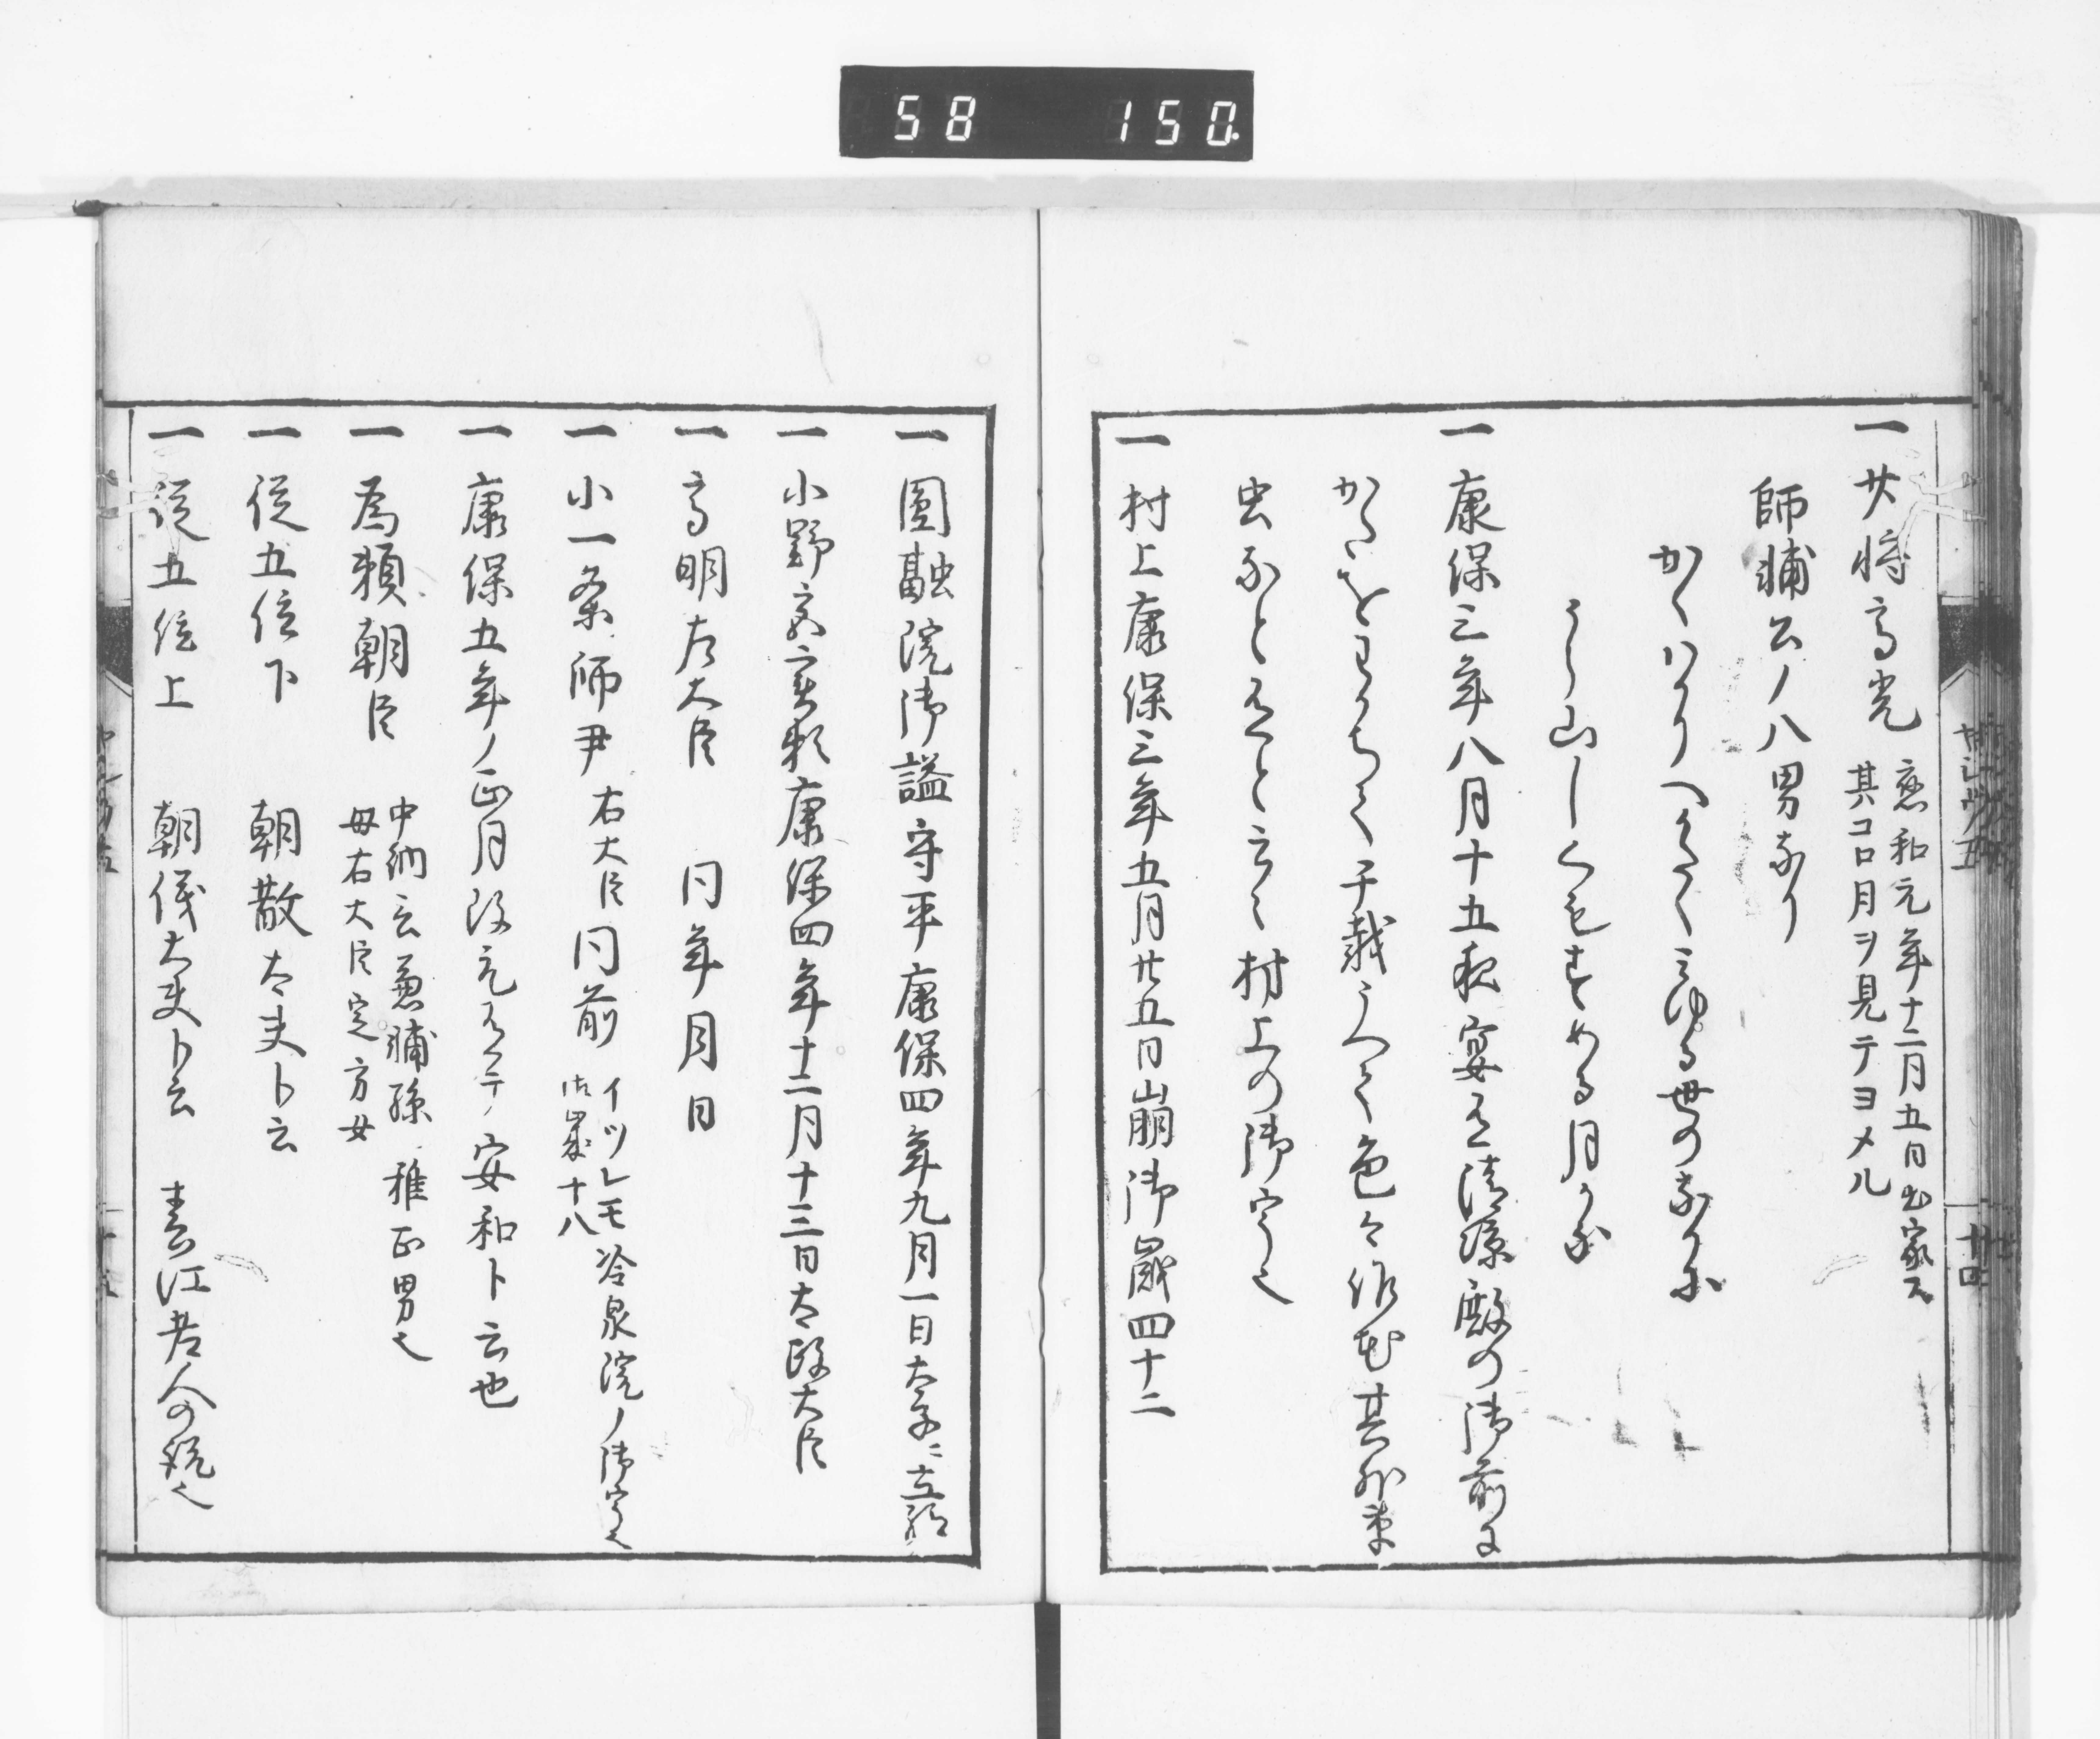 58 150
一 少将高光 應和元年十二月五日出家ス
其コロ月ヲ見テヨメル
師輔公ノ八男なり
かくはかりへかたくみゆる世の中に
うら山しくもすめる月かな
一 康保三年八月十五夜宴有清涼殿の御前に
かたをわかちて千栽うへて色々作花其外草
虫なと有と云々村上の御宇也
一 村上康保三年五月廿五日崩御歳四十二
一 圓融院御諡守平康保四年九月一日太子ニ立給
一 小野宮実頼康保四年十二月十三日太政大臣
一 高明左大臣 同年月日
一 小一条師尹 右大臣 同前 イツレモ冷泉院ノ御宇也
御歳十八
一 康保五年ノ正月改元有テ安和ト云也
一 為頼朝臣 中納言兼輔孫 雅正男也
母右大臣定方女
一 従五位下 朝散大夫ト云
一 従五位上 朝儀大夫ト云
廿四